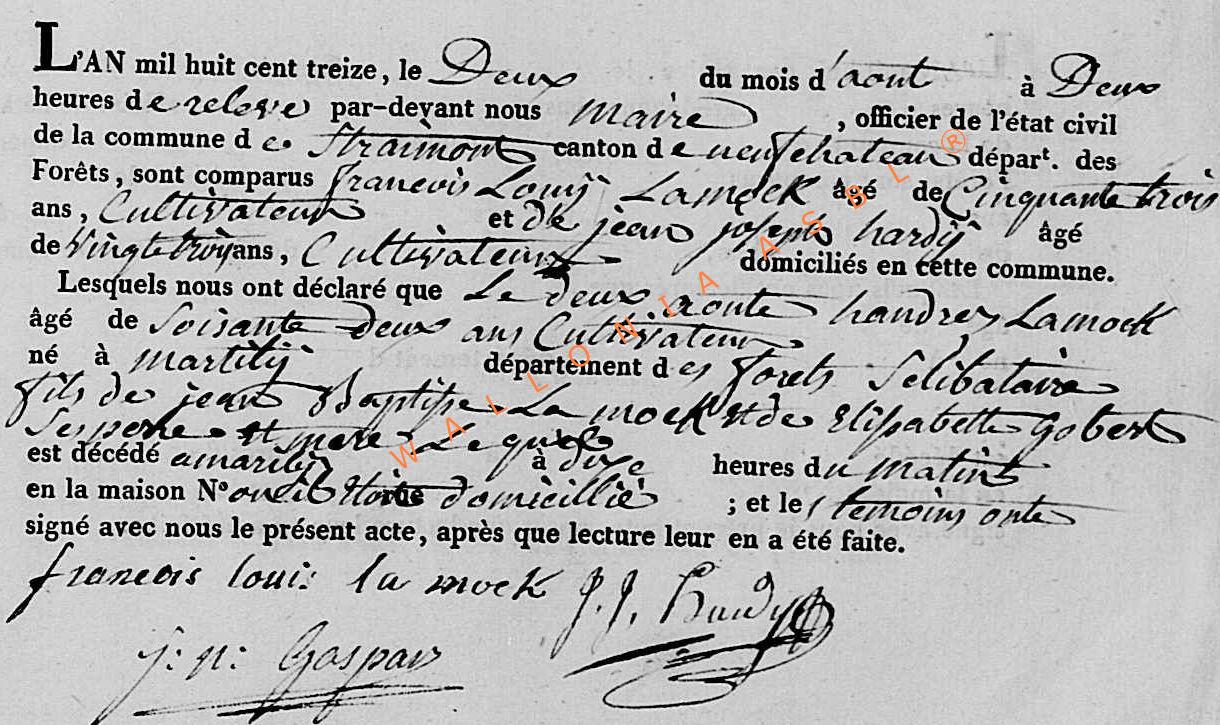 L'AN mil huit cent treize, le Deux du mois d'aout à Deux
heures de releve par-devant nous maire, officier de l'état civil
de la commune de Straimont canton de neufchateau départ. des
Forêts, sont comparus francois Louis Lamock âgé de Cinquante trois
ans, Cultivateur et de jean joseph hardy âgé
de Vingte trois ans, Cultivateur domiciliés en cette commune.
Lesquels nous ont déclaré que Le deux aoute handrey Lamock
âgé de Soisante deux ans Cultivateur
né à martilly département des forets Selibataire
fils de jean Baptiste La mock et de Elisabette Gobert
Ses pere et mere Lequele
est décédé à dixe heures du matint
en la maison N° ou il étoit domicillié ; et les temoins onte
signé avec nous le présent acte, après que lecture leur en a été faite.
francois loui: la mock J. J. Hardy
J: n: Gaspar
WALLONIA ASBL ®